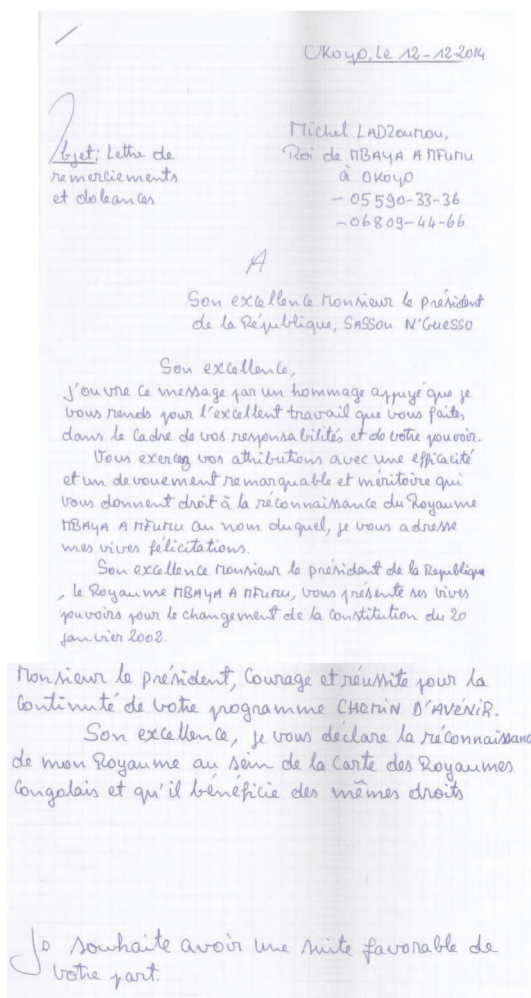 Okoyo, Le 12-12-2014
Objet: Lettre de
remerciements
et doleances
Michel LADZoumou,
Roi de MBAYA A MFUMU
à OKOYO
- 05 590-33-36
- 06 809-44-66
A
Son excellence Monsieur le président
de la République, SASSOU N'GUESSO
Son excellence,
J'ouvre ce message par un hommage appuyé que je
vous rends pour l'excellent travail que vous faites,
dans le cadre de vos responsabilités et de votre pouvoir.
Vous exercez vos attributions avec une efficacité
et un devouement remarquable et méritoire qui
vous donnent droit à la réconnaissance du Royaume
MBAYA A MFUMU au nom duquel, je vous adresse
mes vives félicitations.
Son excellence Monsieur le président de la Republique
, le Royaume MBAYA A MFUMU, vous présente ses vives
pouvoirs pour le changement de la constitution du 20
janvier 2002.
Monsieur le président, Courage et réussite pour la
Continuté de votre programme CHEMIN D'AVENIR.
Son excellence, je vous déclare la réconnaissanc
de mon Royaume au sein de la Carte des Royaumes
Congolais et qu'il bénéficie des mêmes droits
Je souhaite avoir une suite favorable de
votre part.